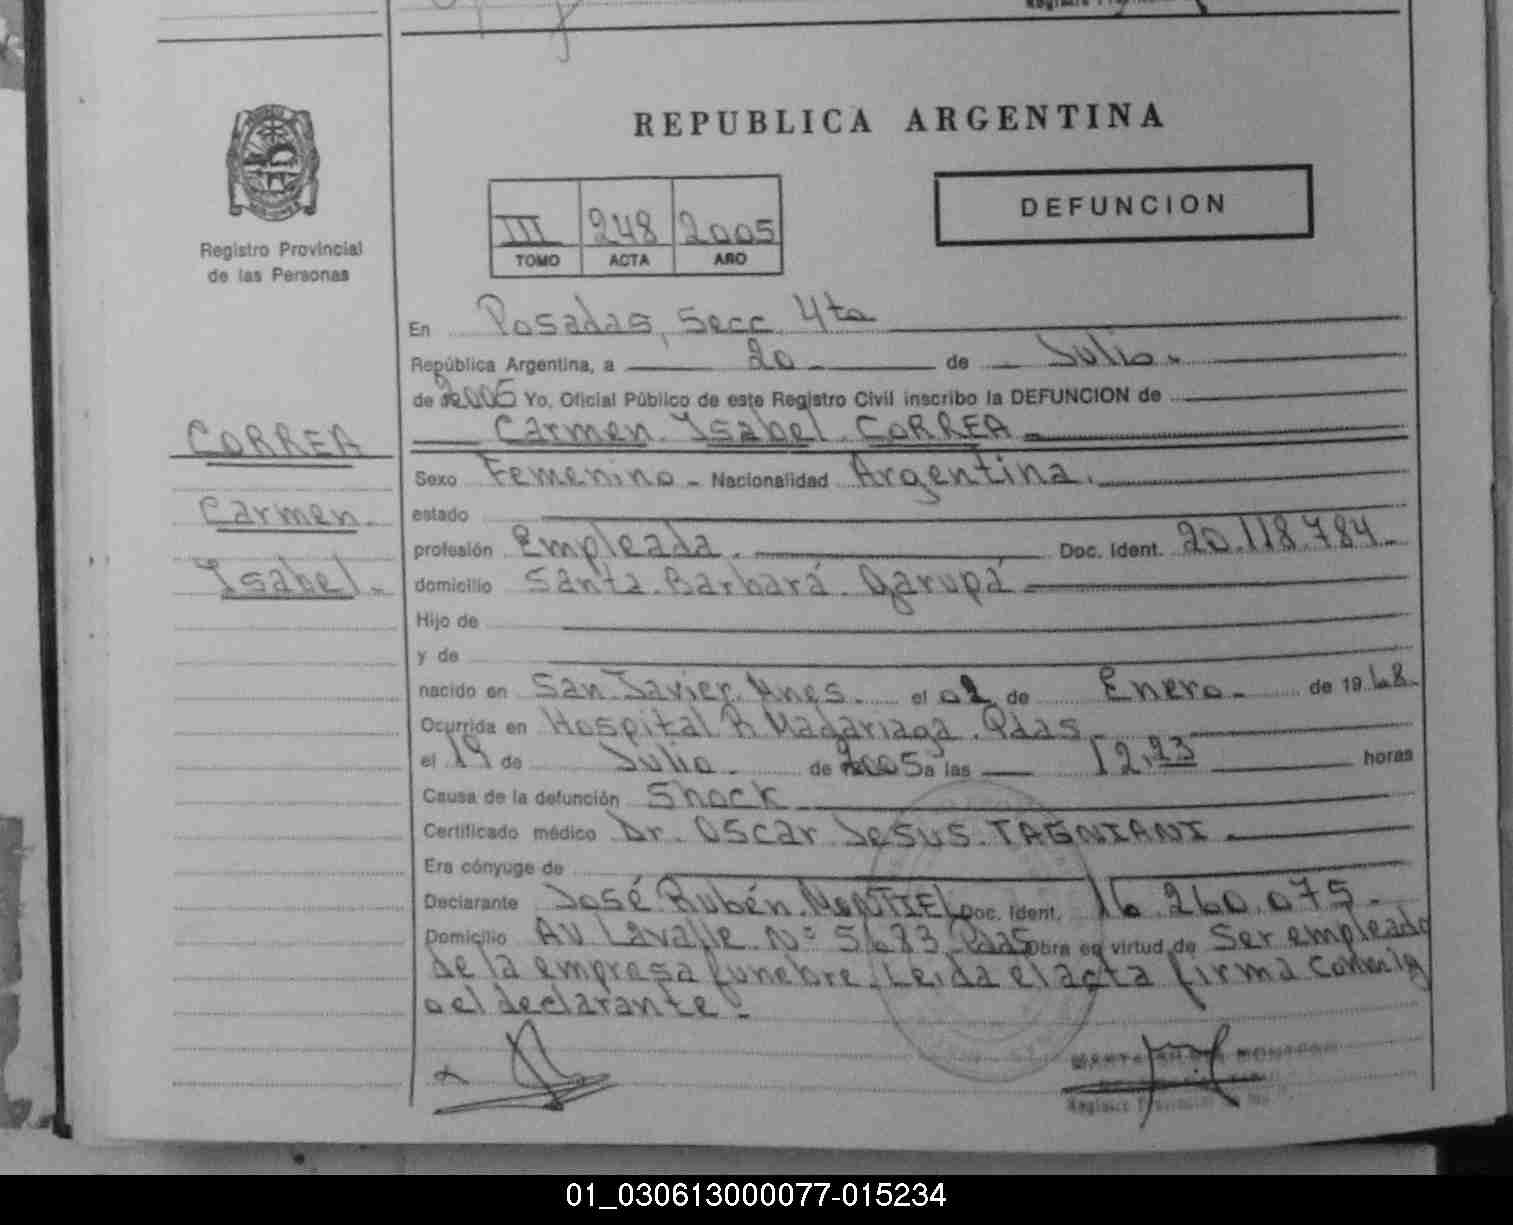 REPUBLICA ARGENTINA
Registro Provincial
de las Personas
III 248 2005
TOMO ACTA AÑO
DEFUNCION
En Posadas, Secc 4ta
República Argentina, a 20 de Julio.
de 2005 Yo, Oficial Público de este Registro Civil inscribo la DEFUNCION de
CORREA
Carmen
Isabel.
Carmen Isabel CORREA
Sexo Femenino - Nacionalidad Argentina.
estado
profesión Empleada. Doc. Ident. 20.118.784
domicilio Santa Barbará Garupá
Hijo de
y de
nacido en San Javier Mnes. el 02 de Enero de 1968
Ocurrida en Hospital R Madariaga. Pdas
el 19 de Julio de 2005 a las 12,23 horas
Causa de la defunción Shock
Certificado médico Dr. Oscar Jesus TAGNIANI
Era cónyuge de
Declarante José Rubén MONTIEL Doc. Ident. 16.260.075
Domicilio AV. Lavalle Nº 5683 Pdas Obra en virtud de Ser empleado
de la empresa funebre. Leida el acta firma conmig
o el declarante.
01_030613000077-015234